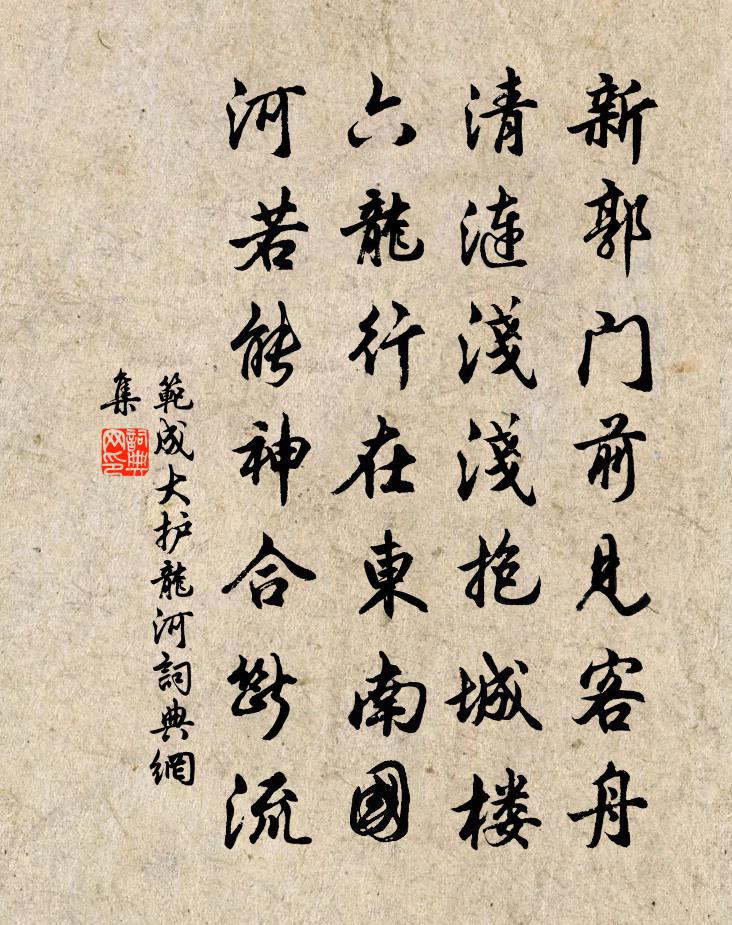 新郭门前見客舟
清漣淺淺抱城楼
六龍行在東南國
河若能神合斷流
範成大护龍河詞典網
集
詞典
网印